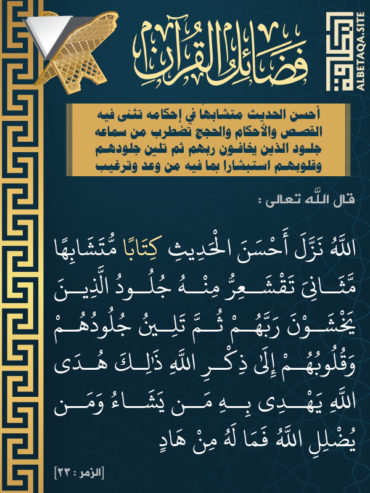 فضائل القرآن
البطاقة
ALBETAQA.SITE
أحسن الحديث متشابها في إحكامه تثنى فيه
القصص والأحكام والحجج تضطرب من سماعه
جلود الذين يخافون ربهم ثم تلين جلودهم
وقلوبهم استبشارا بما فيه من وعد وترغيب
قال الله تعالى :
اللَّهُ نَزَّلَ أَحْسَنَ الْحَدِيثِ كِتَابًا مُّتَشَابِهًا
مَّثَانِيَ تَقْشَعِرُّ مِنْهُ جُلُودُ الَّذِينَ
يَخْشَوْنَ رَبَّهُمْ ثُمَّ تَلِينُ جُلُودُهُمْ
وَقُلُوبُهُمْ إِلَىٰ ذِكْرِ اللَّهِ ذَٰلِكَ هُدَى
اللَّهِ يَهْدِي بِهِ مَن يَشَاءُ وَمَن
يُضْلِلِ اللَّهُ فَمَا لَهُ مِنْ هَادٍ
[الزمر : ٢٣]